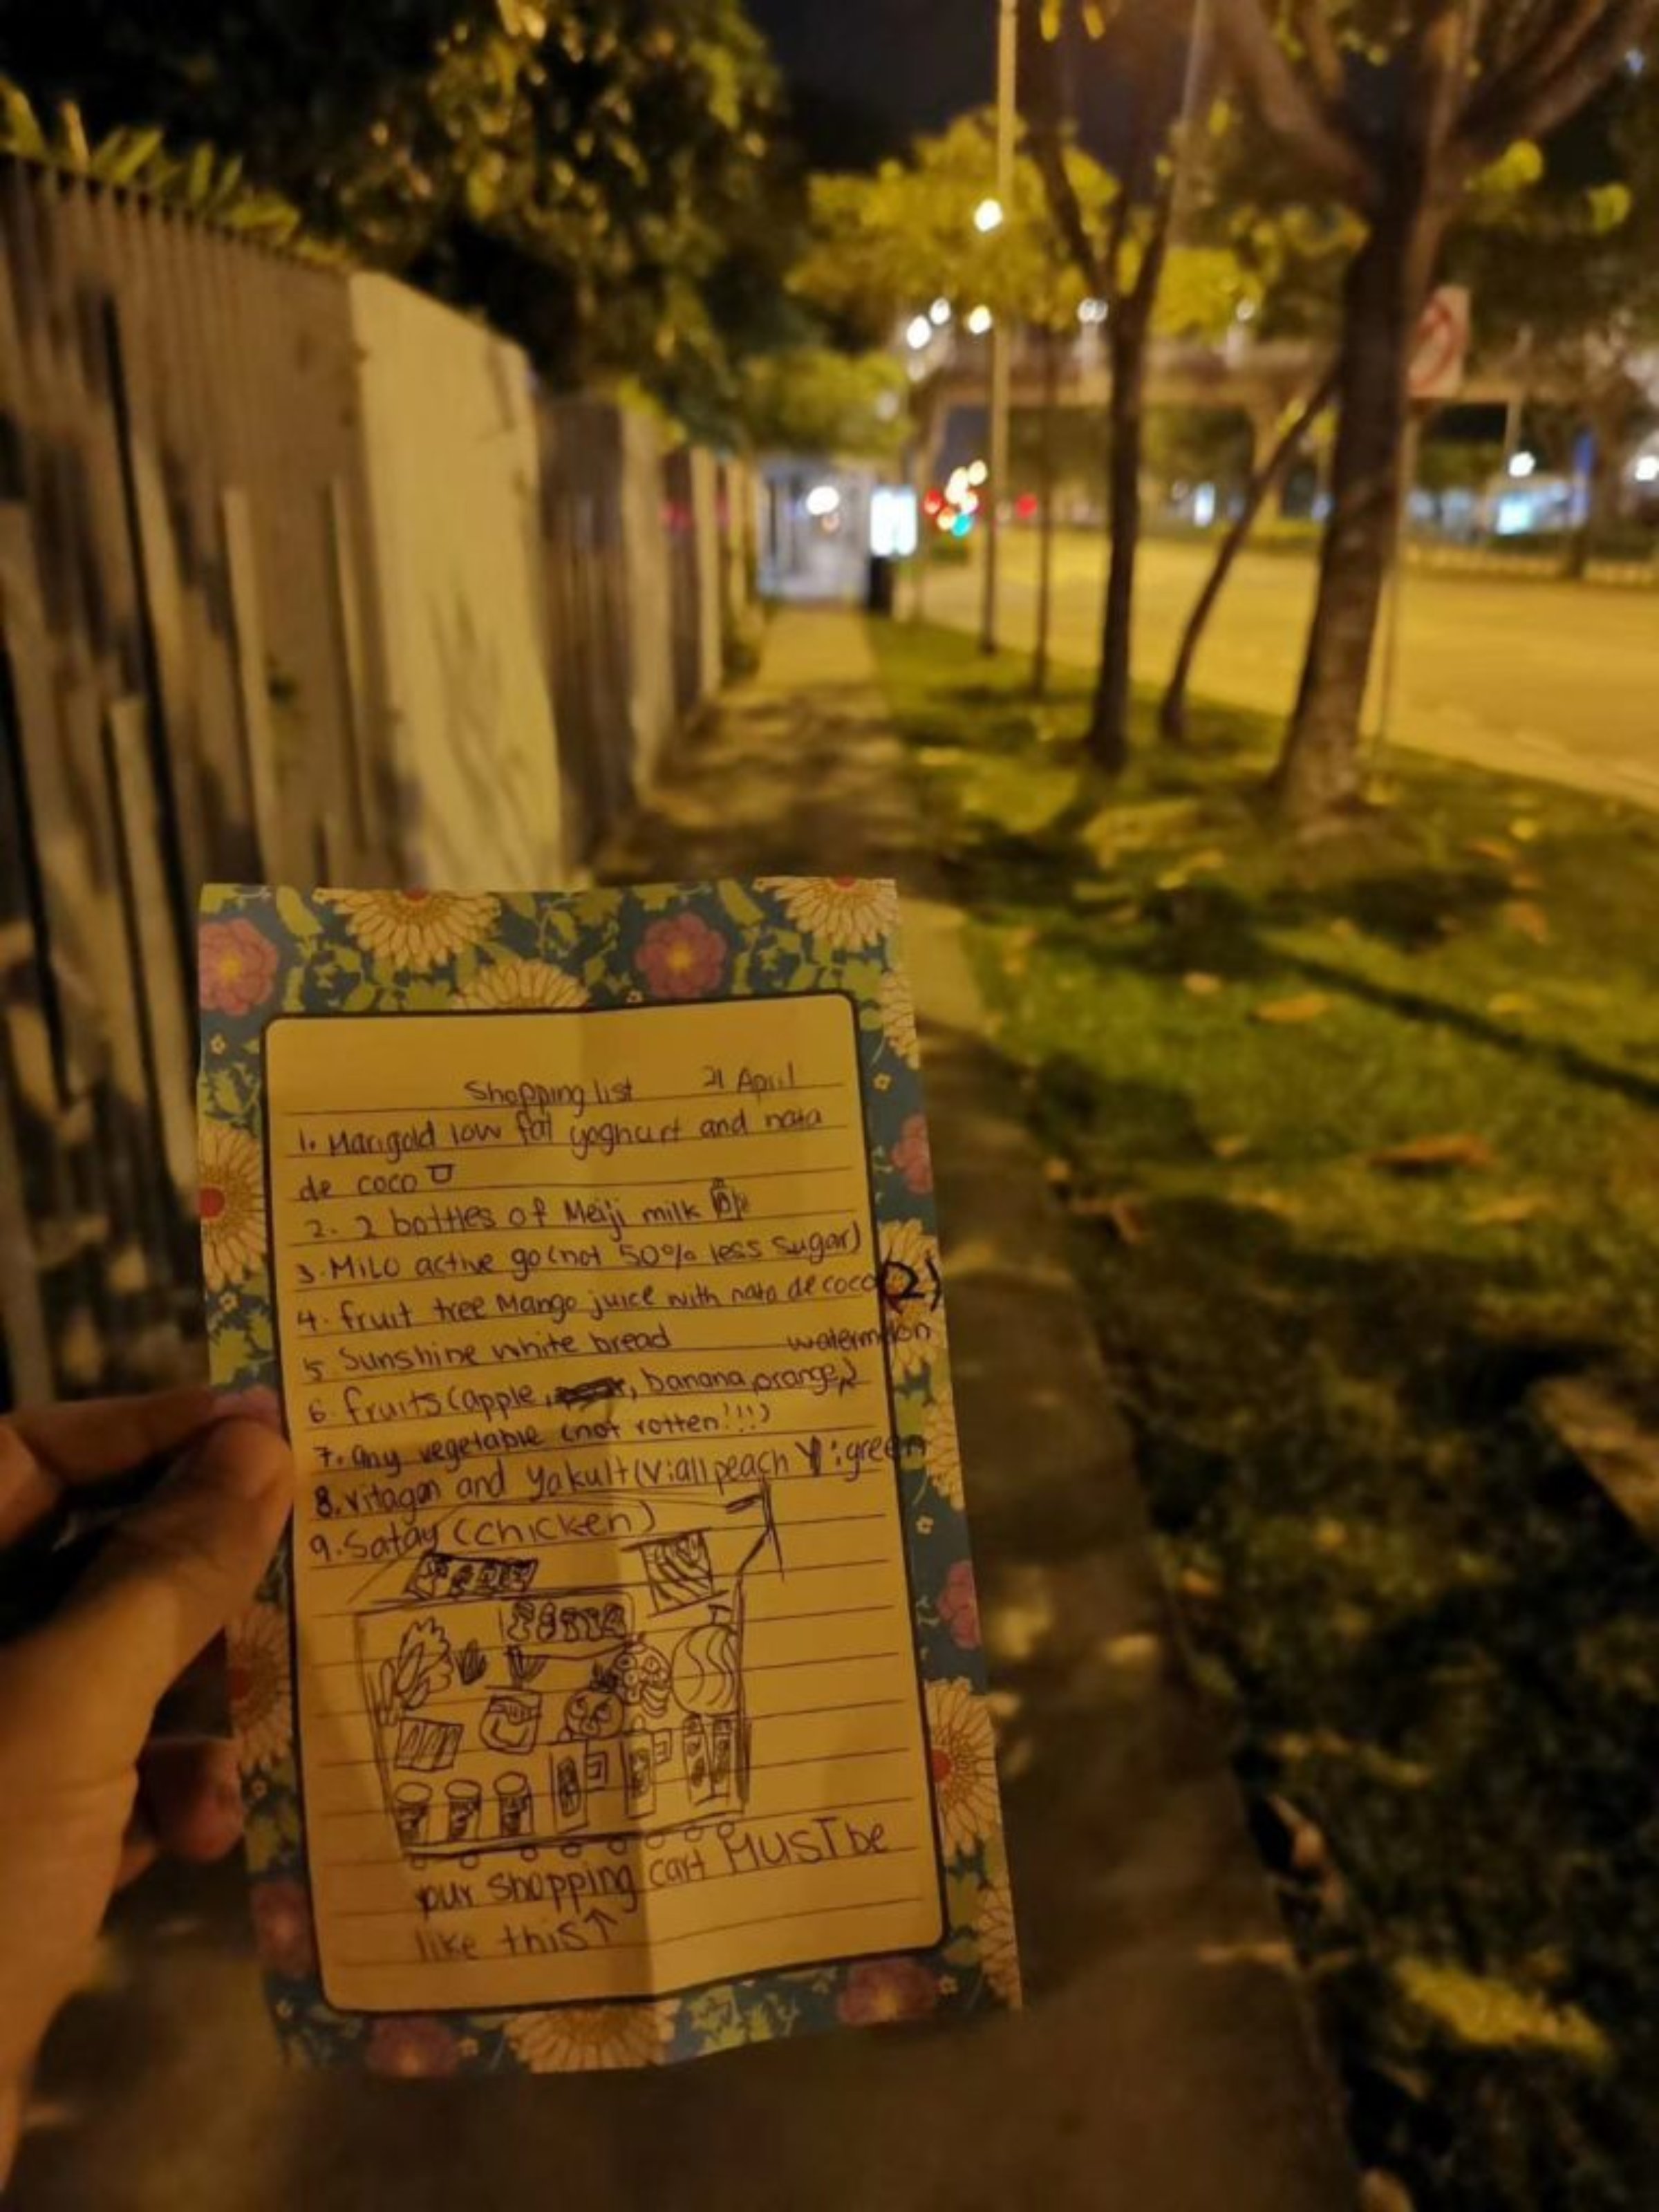 Shopping list 21 April
1. Marigold low fat yoghurt and nata
de coco
2. 2 bottles of Meiji milk
3. MiLO active go (not 50% less sugar)
4. fruit tree Mango juice with nata de coco (2)
5 Sunshine white bread
watermelon
6. fruits (apple, , banana, orange,)
7. any vegetable (not rotten!!!)
8. vitagen and Yakult (V: all peach Y: green
9. Satay (chicken)
your shopping cart MUST be
like this ↑